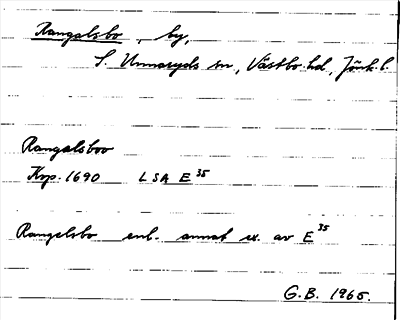 Rangalsbo, by,
S. Unnaryds sn, Västbo hd, Jönk. l.
Rangalsboo
Kop. 1690 LSA E 35
Rangelsbo enl. annat ex. av E 35
G.B. 1965.